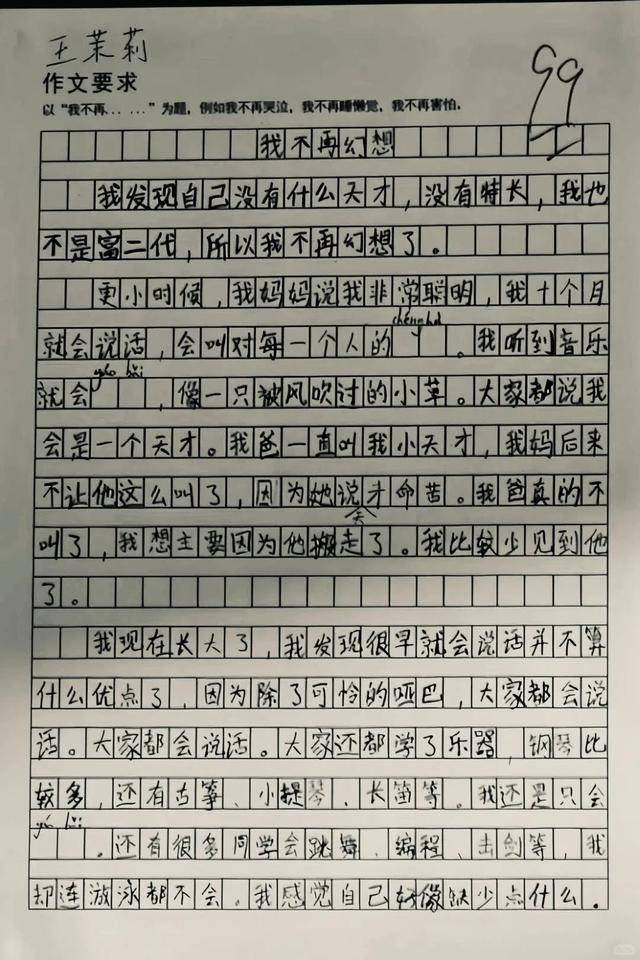 王茉莉
99
作文要求
以“我不再... ...”为题，例如我不再哭泣，我不再睡懒觉，我不再害怕.
我不再幻想
我发现自己没有什么天才，没有特长，我也
不是富二代，所以我不再幻想了。
更小时候，我妈妈说我非常聪明，我十个月
就会说话，会叫对每一个人的chēnghū。我听到音乐
就会yáo bǎi，像一只被风吹过的小草。大家都说我
会是一个天才。我爸一直叫我小天才，我妈后来
不让他这么叫了，因为她说天才命苦。我爸真的不
叫了，我想主要因为他搬走了。我比较少见到他
了。
我现在长大了，我发现很早就会说话并不算
什么优点了，因为除了可怜的哑巴，大家都会说
话。大家都会说话。大家还都学了乐器，钢琴比
较多，还有古筝、小提琴、长笛等。我还是只会
yáo bǎi。还有很多同学会跳舞、编程、击剑等，我
却连游泳都不会。我感觉自己好像缺少点什么。